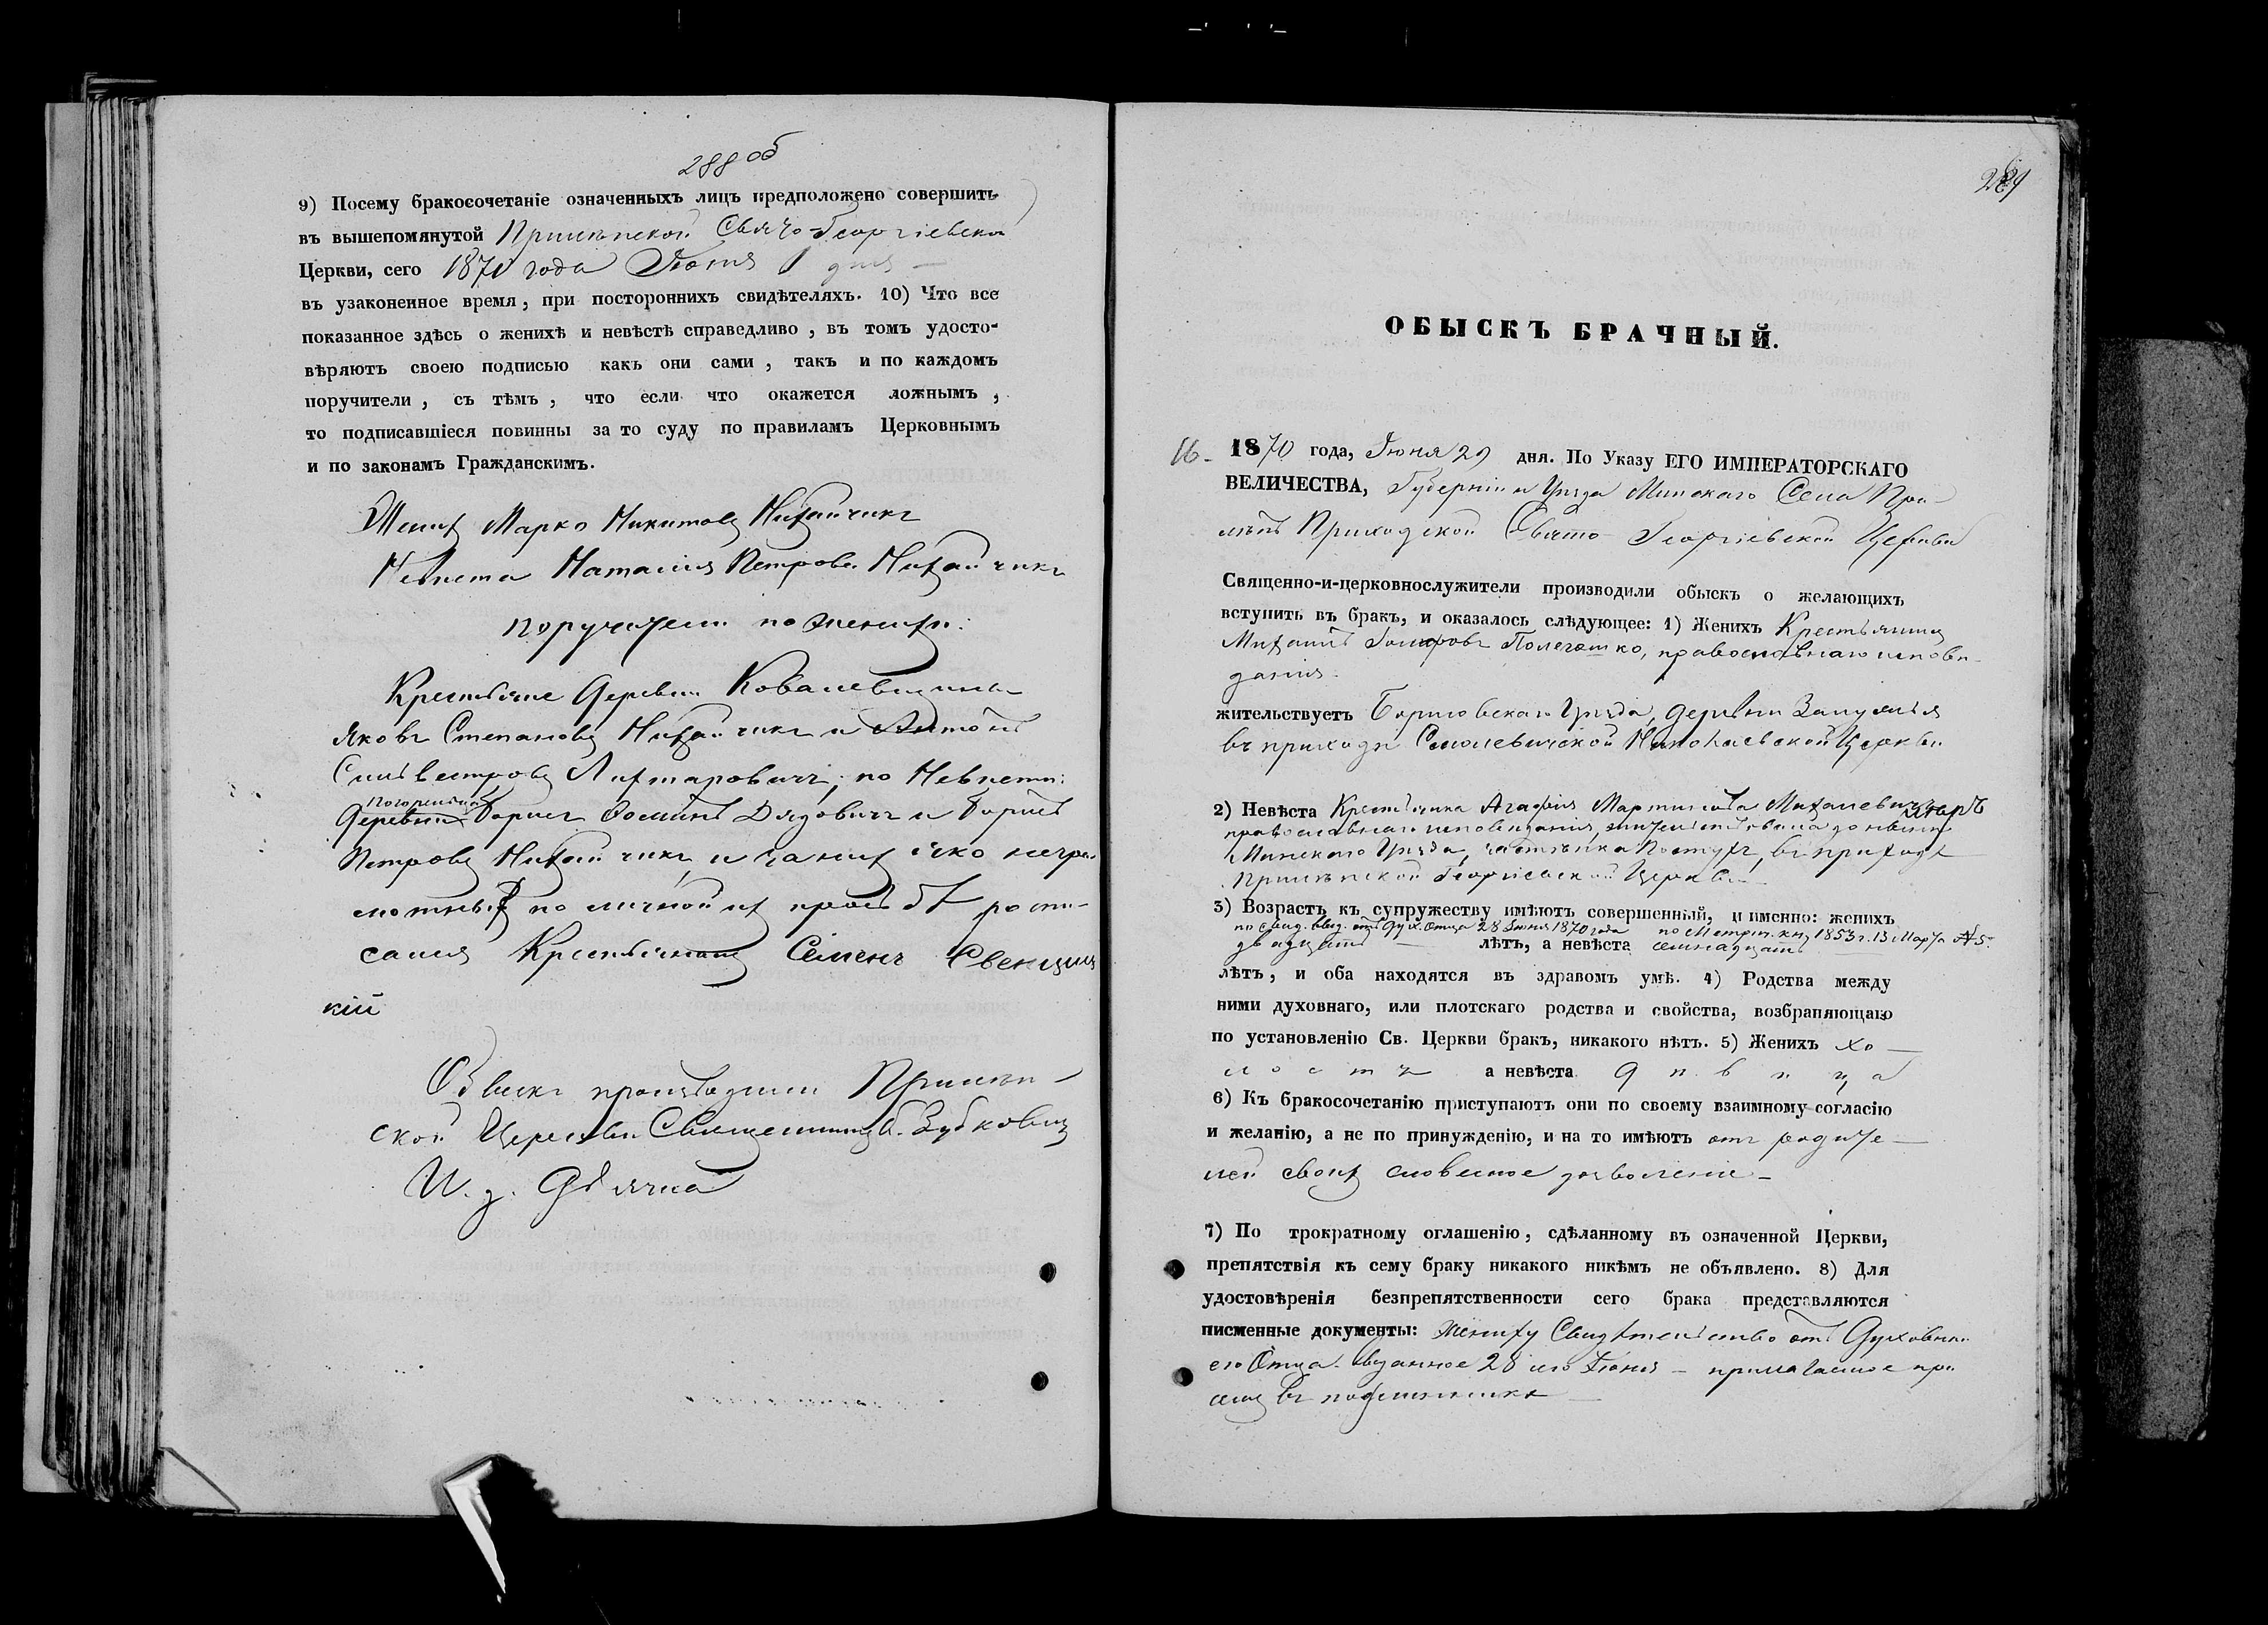 288 об
9) Посему бракосочетаніе означенныхъ лицъ предположено совершить
въ вышепомянутой Прилѣпской Свято-Георгіевской
Церкви, сего 1870 года дня
въ узаконенное время, при постороннихъ свидѣтеляхъ. 10) Что все
показанное здѣсь о женихѣ и невѣстѣ справедливо, въ томъ удосто-
вѣряютъ своею подписью какъ они сами, такъ и по каждомъ
поручители, съ тѣмъ, что если что окажется ложнымъ,
то подписавшіеся повинны за то суду по правиламъ Церковнымъ
и по законамъ Гражданскимъ.
Женихъ Марко Никитовъ
Невѣста Наталія Петрова
поручители по женихѣ:
Крестьяне Деревни Ковалевщины
Яковъ Степановъ и Антонъ
Сильвестровъ Лихтаровичъ, по Невѣстѣ:
Деревни Борисъ Ѳоминъ Дядовичъ и Борисъ
Петровъ и за нихъ яко негра-
мотныхъ по личной ихъ просьбѣ роспи-
сался Крестьянинъ Семенъ Свенциц
кій
Обыскъ производили Прилѣп-
ской Церкви Священникъ Зубковичъ
И. д. Дьячка
289
ОБЫСКЪ БРАЧНЫЙ.
16 - 1870 года, Іюня 29 дня. По Указу ЕГО ИМПЕРАТОРСКАГО
ВЕЛИЧЕСТВА, Губерніи и Уѣзда Минскаго Села При-
лѣпъ Приходской Свято-Георгіевской Церкви
Священно-и-церковнослужители производили обыскъ о желающихъ
вступить въ бракъ, и оказалось слѣдующее: 1) Женихъ Крестьянинъ
Михаилъ православнаго исповѣ-
данія.
жительствуетъ Борисовскаго Уѣзда, деревни
въ приходѣ Смолевичской Николаевской Церкви
2) Невѣста Крестьянка Агафія Мартинова Михалевичъ
православнаго исповѣданія, жительствовала донынѣ
Минскаго Уѣзда, въ приходѣ
Прилѣпской Георгіевской Церкви
3) Возрастъ къ супружеству имѣютъ совершенный, и именно: женихъ
по свид. выд. отъ Дух. Отца 28 Іюня 1870 года по Метрич. кн. 1853 г. 13 Марта № 5.
двадцать лѣтъ, а невѣста семнадцать
лѣтъ, и оба находятся въ здравомъ умѣ. 4) Родства между
ними духовнаго, или плотскаго родства и свойства, возбраняющаго
по установленію Св. Церкви бракъ, никакого нѣтъ. 5) Женихъ хо-
лостъ а невѣста дѣвица
6) Къ бракосочетанію приступаютъ они по своему взаимному согласію
и желанію, а не по принужденію, и на то имѣютъ отъ родите-
лей своихъ словесное дозволеніе -
7) По трократному оглашенію, сдѣланному въ означенной Церкви,
препятствія къ сему браку никакого никѣмъ не объявлено. 8) Для
удостовѣренія безпрепятственности сего брака представляются
писменные документы: Жениху Свидѣтельство отъ Духовнаго
его Отца выданное 28 Іюня - прилагаемое при
семъ въ подлинникѣ